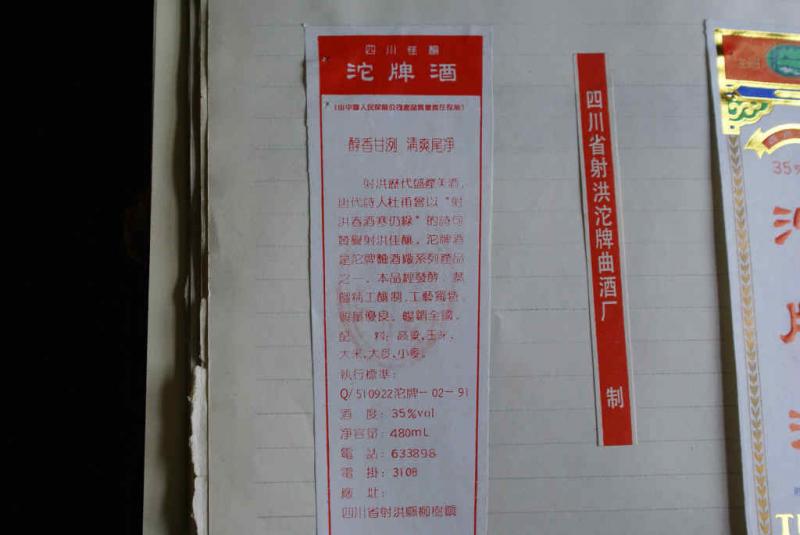 四川佳釀
沱牌酒
(由中國人民保險公司產品質量責任保險)
醇香甘洌 清爽尾淨
射洪歷代盛產美酒,
唐代詩人杜甫曾以“射
洪春酒寒仍綠”的詩句
贊譽射洪佳釀。沱牌酒
是沱牌麯酒廠系列產品
之一。本品經發酵、蒸
餾精工釀制,工藝獨特,
質量優良、暢銷全國。
配 料:高粱,玉米,
大米,大麥,小麥。
執行標準:
Q/510922沱牌-02-91
酒 度:35%vol
净容量:480mL
電 話:633898
電 掛:3108
廠 址:
四川省射洪縣柳樹鎮
四川省射洪沱牌曲酒厂 制
35%
沱
牌
酒